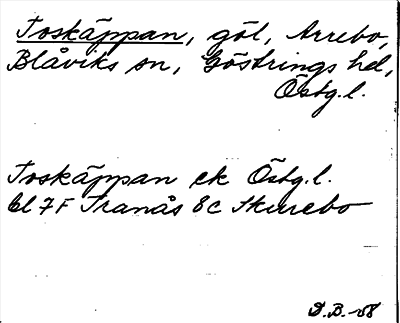 Toskäppan, göl, Arrebo,
Blåviks sn, Göstrings hd,
Östg.l.
Toskäppan ek Östg.l.
bl 7F Tranås 8c Skurrebo
D.B.-58